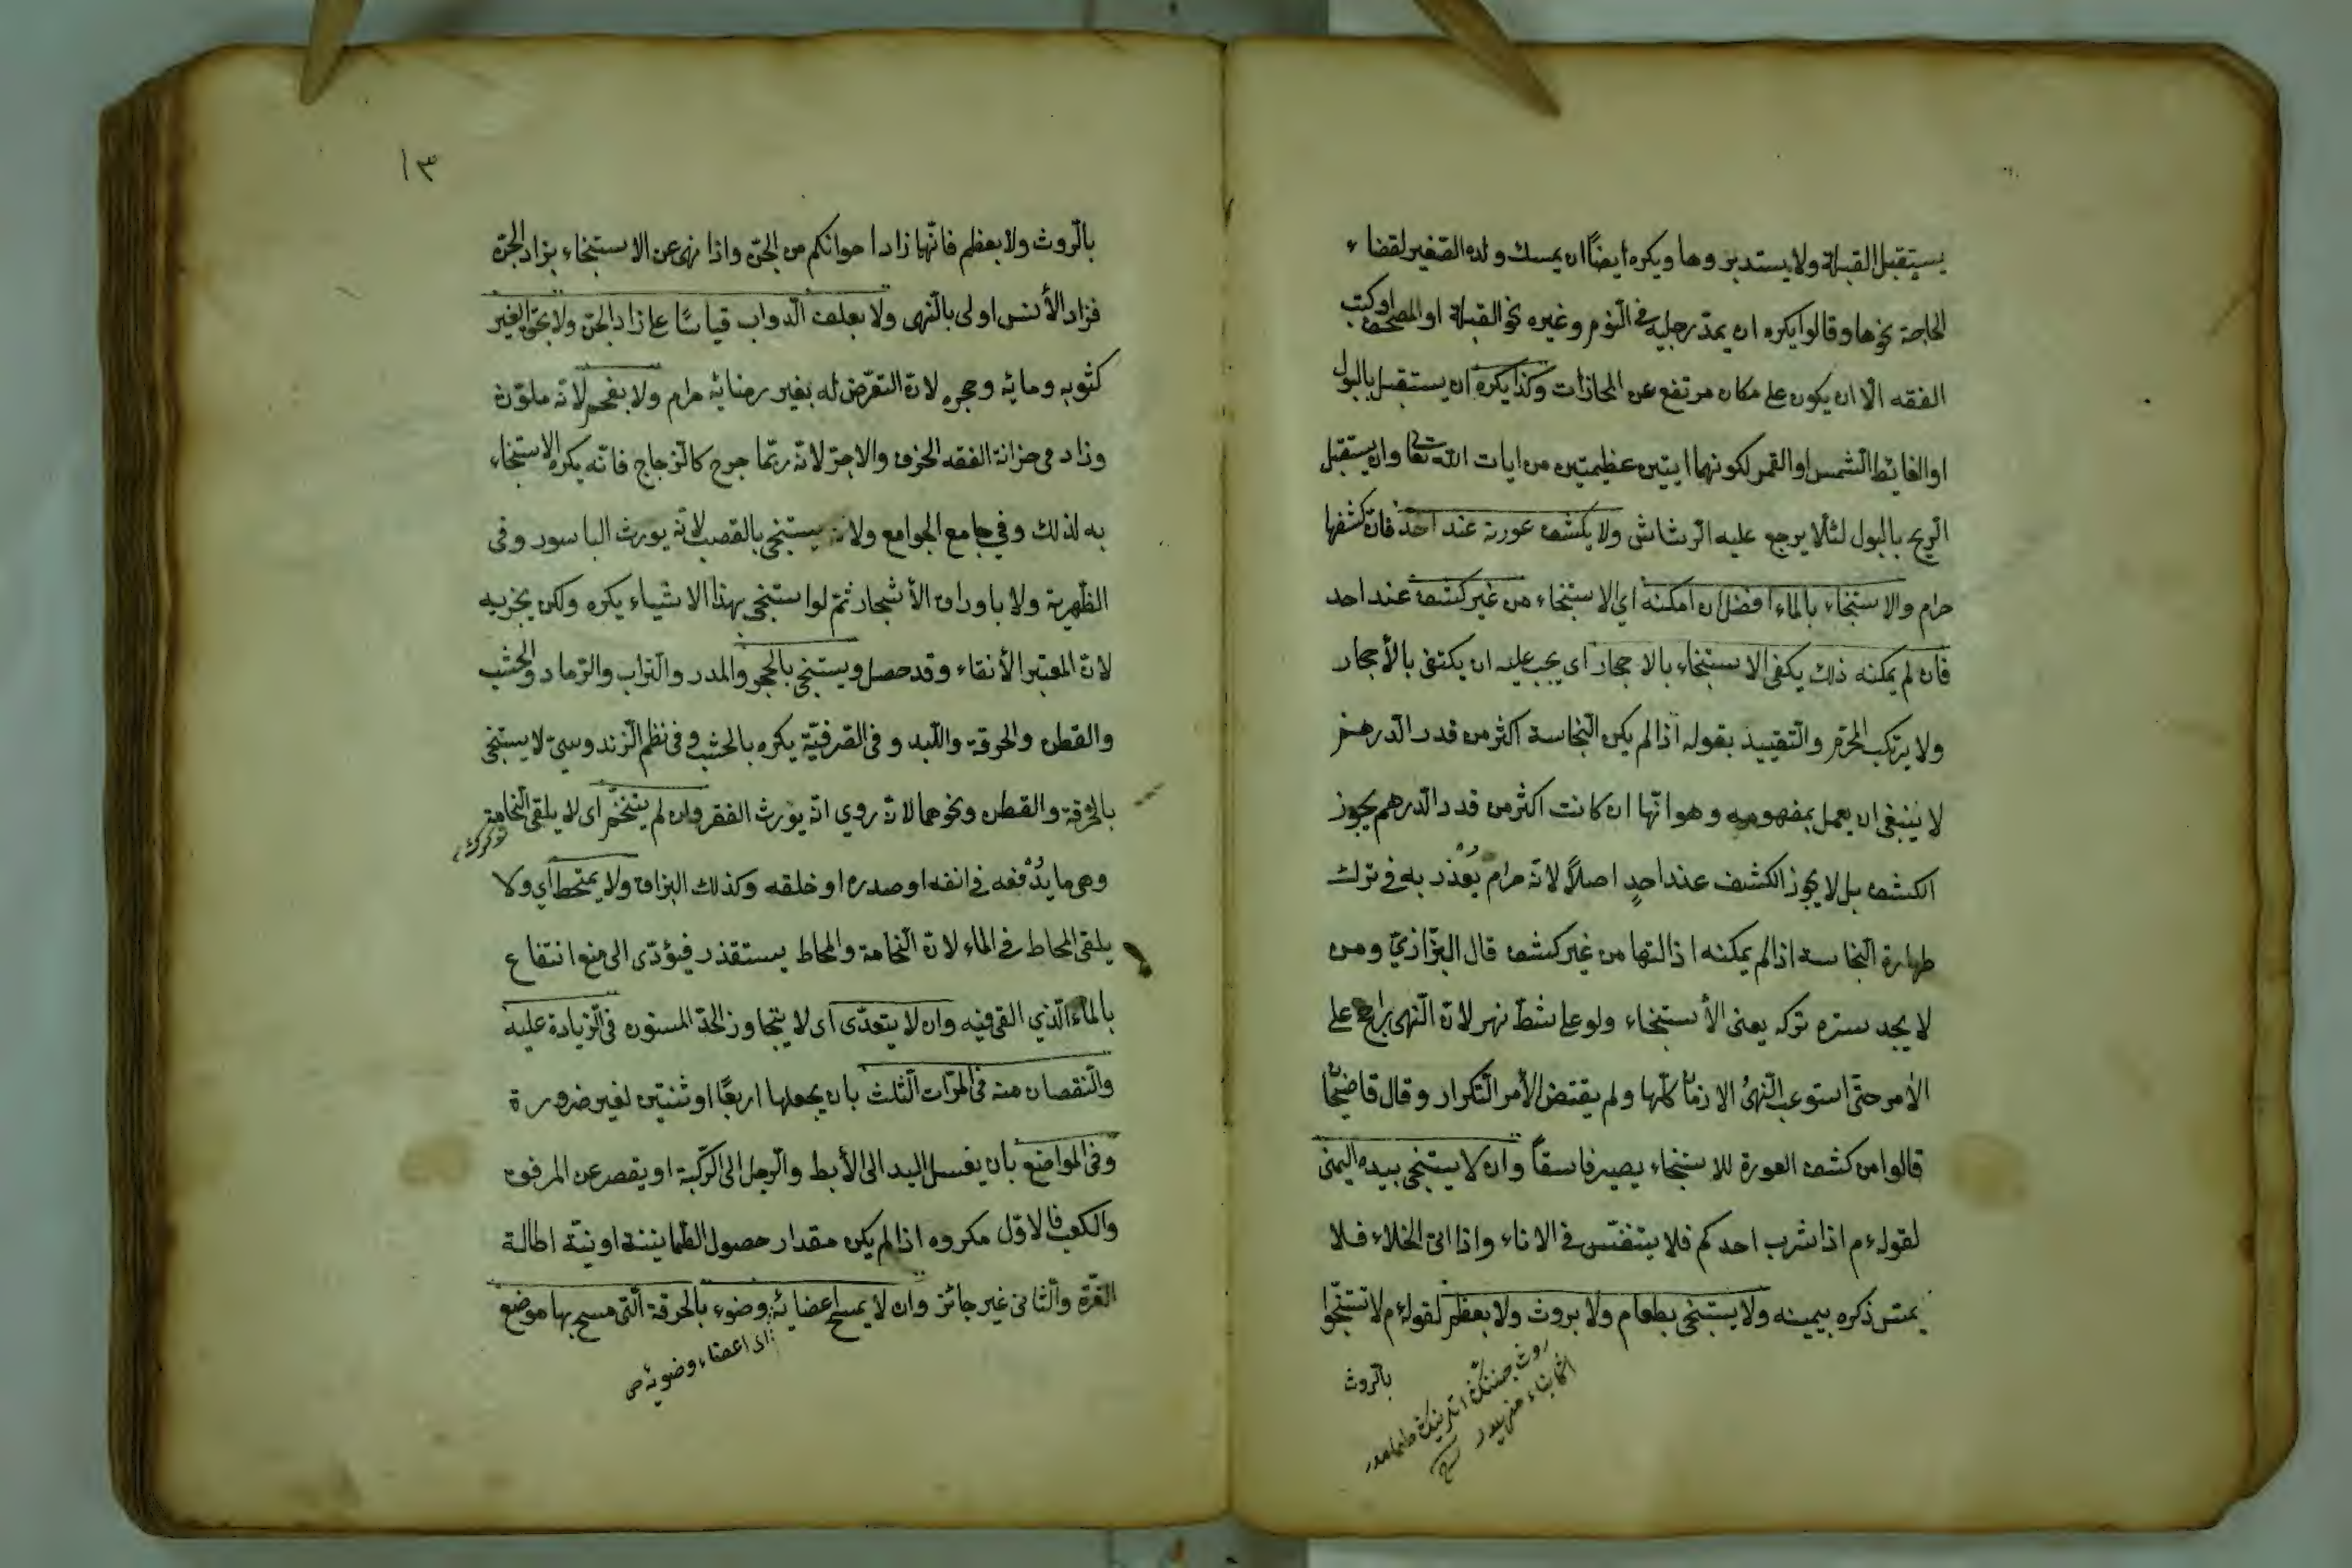 يستقبل القبلة ولا يستدبروها ويكره ايضًا ان يمسك ولده الصّغير لقضاء
الحاجة نحوها وقالوا يكره ان يمدّ رجليه فى النّوم وغيره نحو القبلة او المصحف او كتب
الفقه الّا ان يكون على مكان مرتفع عن المحاذات وكذا يكره ان يستقبل بالبول
او الغائط الشّمس او القمر لكونهما ايتين عظيمتين من ايات اللّه تعا وان يستقبل
الرّيح بالبول لئلّا يرجع عليه الرّشاش ولا يكشف عورته عند احد فانّ كشفها
حرام والاستنجاء بالماء افضل ان امكنه اي الاستنجاء من غير كشف عند احد
فان لم يمكنه ذلك يكفى الاستنجاء بالاحجار اى يجب عليه ان يكتفى بالأحجار
ولا يرتكب المحرّم والتّقييد بقوله اذا لم يكن النّجاسة اكثر من قدر الدّرهم
لا ينبغى ان يعمل بمفهومه وهو انّها ان كانت اكثر من قدر الدّرهم يجوز
الكشف بل لا يجوز الكشف عند احدٍ اصلًا لانّه حرام يُعذر به فى ترك
طهارة النّجاسة اذا لم يمكنه اذالتها من غير كشف قال البزّازيّ ومن
لا يجد ستره تركه يعنى الأستنجاء ولو على شطّ نهر لانّ النّهى راجح على
الأمر حتّى استوعب النّهىُ الازمان كلّها ولم يقتض الأمر التّكرار وقال قاضيخان
قالوا من كشف العورة للاستنجاء يصير فاسقاً وان لا يستنجى بيده اليمنى
لقوله ءم اذا شرب احدكم فلا يتنفّس فى الاناء واذا اتى الخلاء فلا
يمسّ ذكره بيمينه ولا يستنجى بطعام ولا بروث ولا بعظم لقوله ءم لا تستنجوا
بالرّوث
١٣
بالرّوث ولا بعظم فانّها زاد اخوانكم من الجنّ واذا نهى عن الاستنجاء بزاد الجنّ
فزاد الأنس اولى بالنّهى ولا بعلف الدّواب قياسًا على زاد الجنّ ولا بحقّ الغير
كثوبه ومائه وحجره لانّ التعرّض له بغير رضائه حرام ولا بفحم لانّه ملوّث
وزاد فى خزانة الفقه الخزف والاجرّ لانّه ربّما جرح كالزجاج فانّه يكره الاستنجاء
به لذلك وفي جامع الجوامع ولا يستنجى بالقصب لانّه يورث الباسور وفى
الظّهرية ولا باوراق الأشجار ثمّ لو استنجى بهذا الاشياء يكره ولكن يجزيه
لانّ المعتبر الأنقاء وقد حصل ويستنجى بالحجر والمدر والتّراب والرّماد والخشب
والقطن والخرقة واللّبد وفى الصّرفيّة يكره بالخشب وفى نظم الزندوسيّ لا يستنجى
بالخرقة والقطن ونحوهما لانّه روي انّه يورث الفقر وان لم يتنخّم اى لا يلقى النّخامة
وهى ما يدْفعه فى انفه او صدره او خلقه وكذلك البزاق ولا يمتخط اي ولا
يلقى المخاط فى الماء لانّ النّخامة والمخاط يستقذر فيؤدّى الى منع انتفاع
بالماء الّذي القى فيه وان لا يتعدّى اى لا يتجاوز الحدّ المسنون فى الزيادة عليه
والنّقصان منه فى المرّات الثّلث بان يجعلها اربعًا او ثنتين لغير ضرورة
وفى المواضع بان يغسل اليد الى الأبط والرّجل الى الرّكبة او يقصر عن المرفق
والكعب فالاوّل مكروه اذا لم يكن مقدار حصول الطّماينينة او نيّة اطالة
الغرّة والثانى غير جائز وان لا يمسح اعضائه وضوء بالخرقة الّتى مسح بها موضع
اى اعضاء وضوئه ص